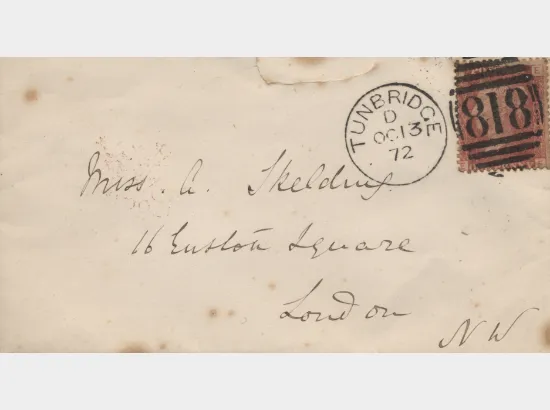 TUNBRIDGE
D
OC 13
72
818
Miss. A. Skelding
16 Euston Square
London
N W